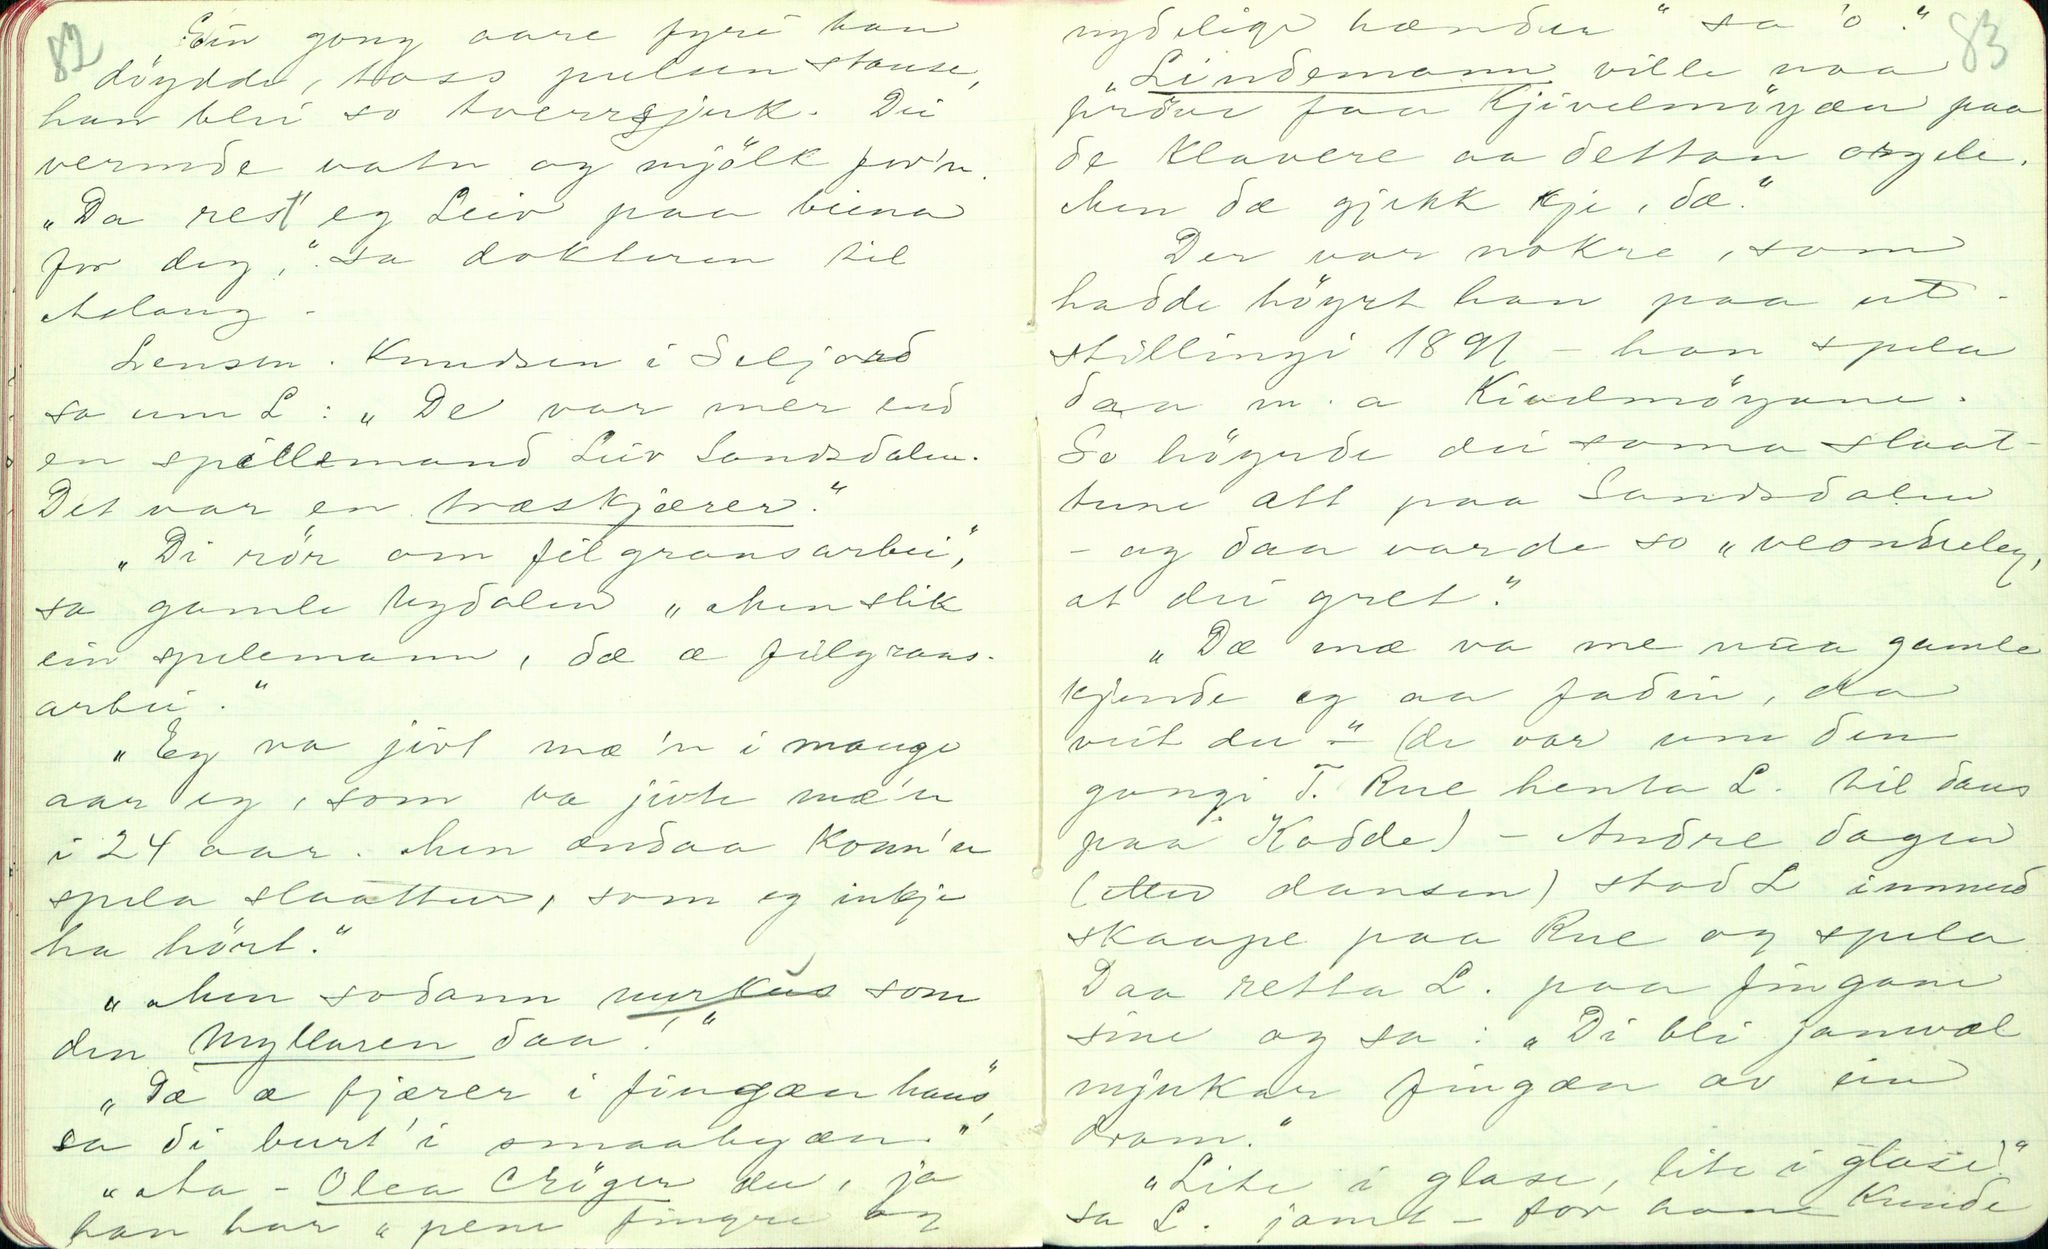 82
Ein gong aare fyri han
döydde, toss pulsen stause,
han blei so tverrsjuk. Dei
vermde vatn og mjölk for'n.
"Da rest' eg Leiv paa beina
for deg," sa dokteren til
Aslaug -
Lensm. Knudsen i Seljord
sa um L: "De var mer end
en spillemand Leiv Sandsdalen.
Det var en træskjærer."
"Di rör om filgransarbei",
sa gamle Nydalen "Men slik
ein spelemann, dæ æ filgrans-
arbei."
"Eg va jivt mæ'n i mange
aar eg, som va jivte mæ'n
i 24 aar. Men ændaa konn'n
spela slaatter, som eg inkje
ha hört."
"Men sodann murkus som
den Myllaren daa!"
"Dæ æ fjærer i fingæn hans",
sa di burt' i smaabyæn."
"Aa - Olea Cröger du, ja
han har "pene fingre og
83
nydelige hænder" sa 'o."
"Lindemann ville naa
pröve faa Kjivelmöyæn paa
de klavere aa dettan orgele.
Men dæ gjekk kje, dæ."
Der var nokre, som
hadde höyrt han paa ut-
stillingi 1891 - han spela
daa m. a Kivelmöyane.
So höyrde dei soma slaat-
tune att paa Sandsdalen
- og daa varde so "veonduleg,
at dei gret."
"Dæ mæ va me naa gamle
kjende eg aa fadin, da
veit du -" (de var um den
gongi T. Rue henta L. til dans
paa Kodde) - Andre dagen
(etter dansen) stod L innmed
skaape paa Rue og spela
Daa retta L. paa fingane
sine og sa: "Di bli jamvæl
mjukar fingæn av ein
dram."
"Lite i glase, lite i glase!"
sa L. jamt - for aana kunde